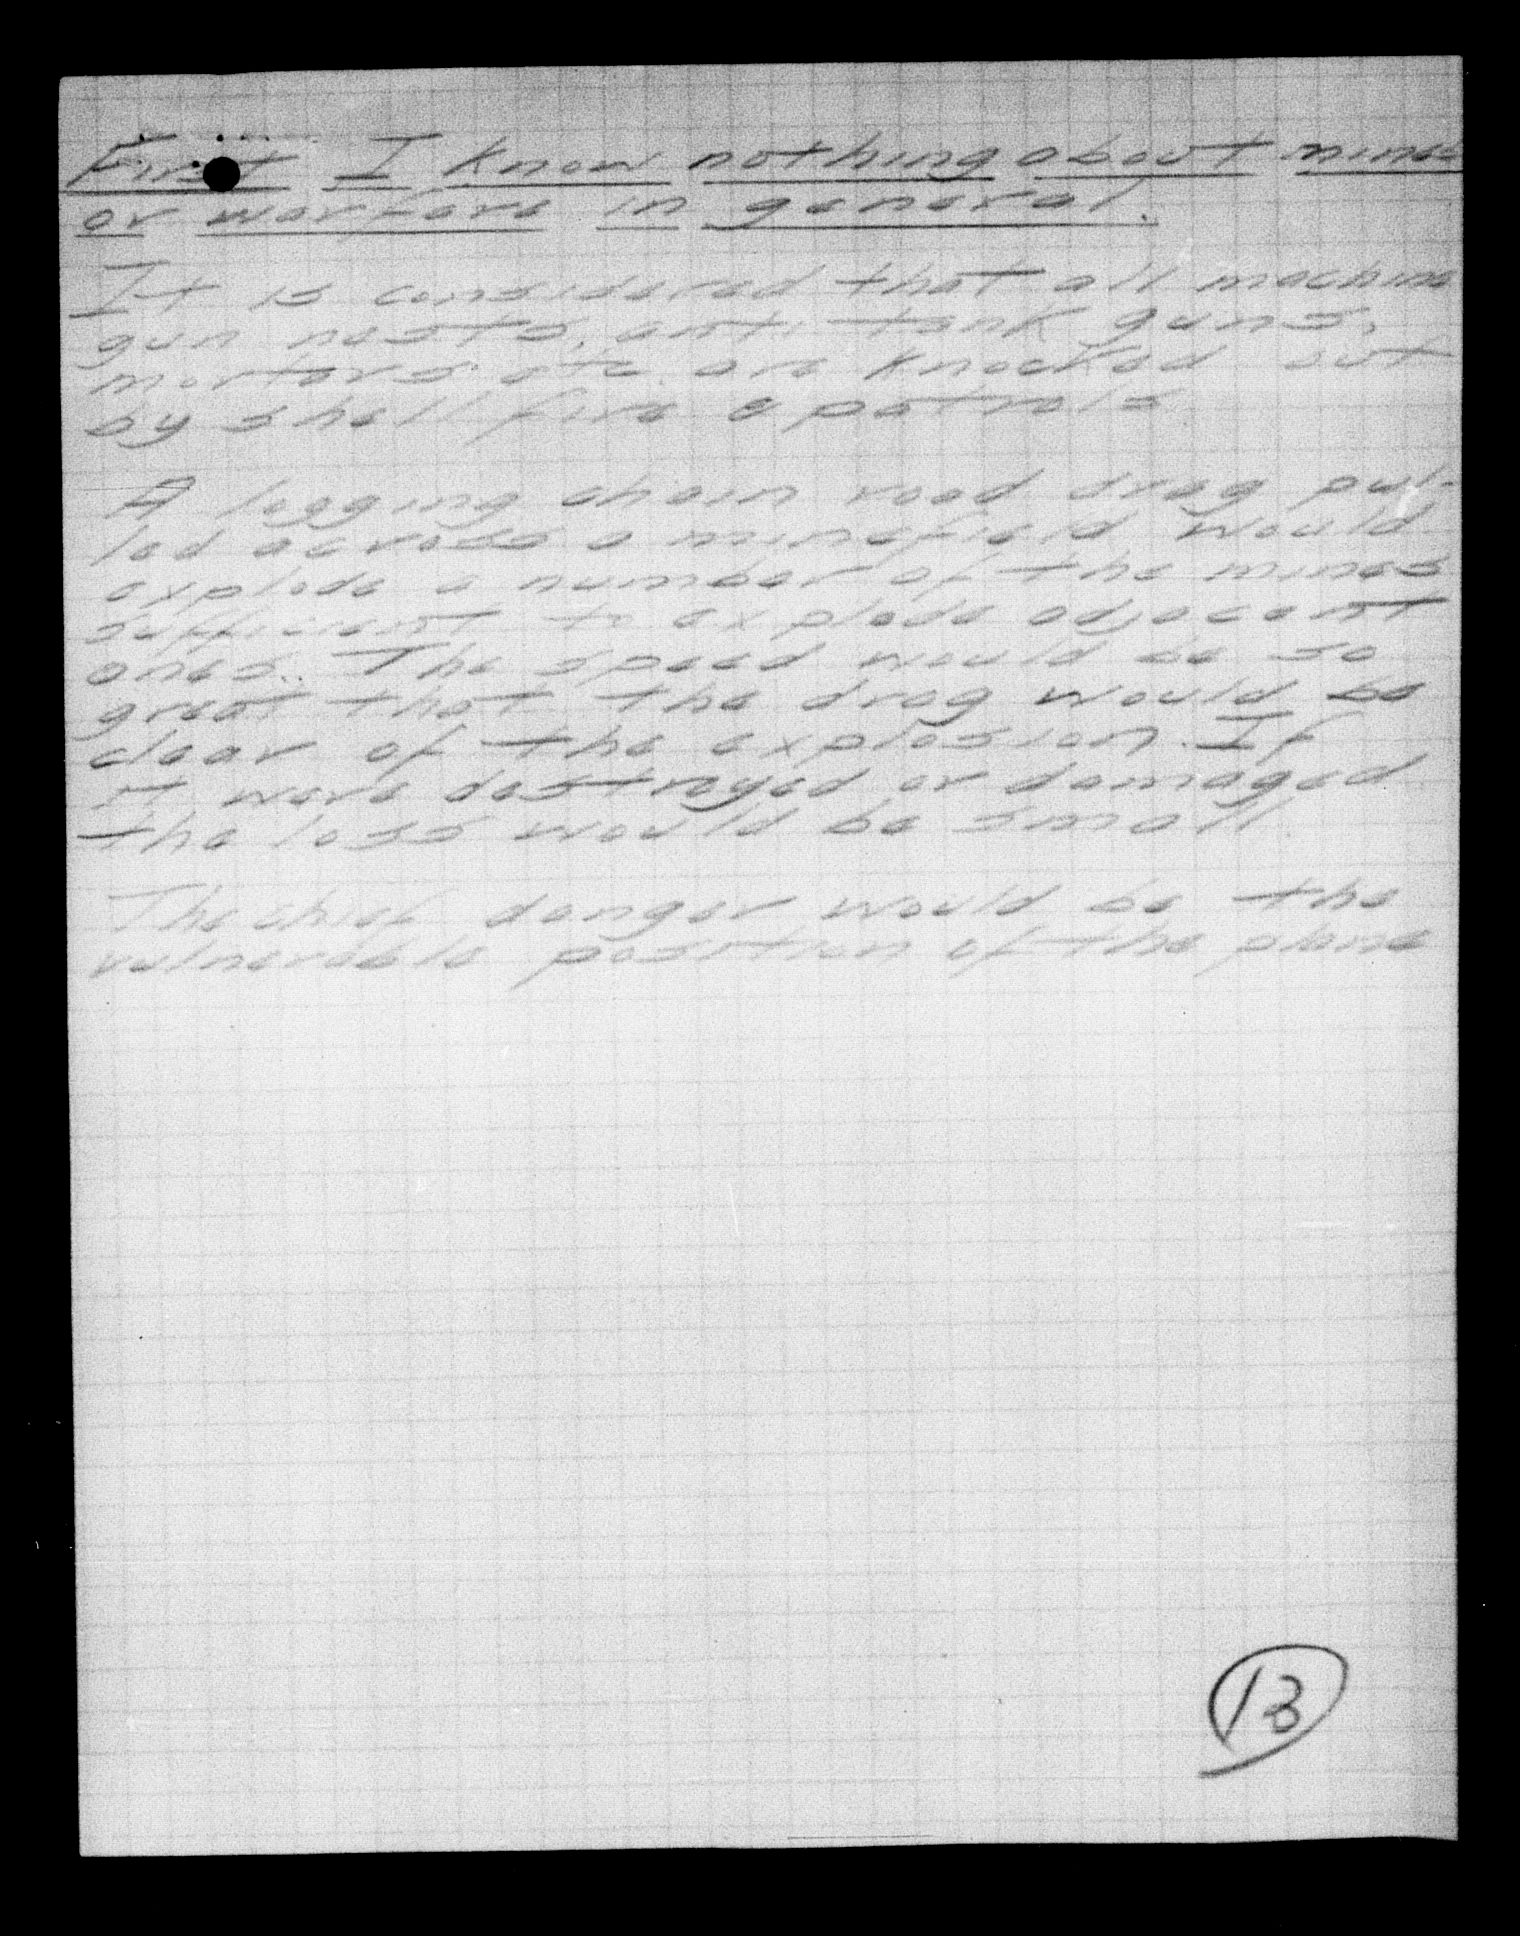 First I know nothing about mines
or warfare in general.
It is considered that all machine
gun nests, anti tank guns,
mortars etc. are knocked out
by shell fire & patrols
A logging chain road drag pul-
led across a minefield would
explode a number of the mines
sufficient to explode adjacent
ones. The speed would be so
great that the drag would be
clear of the explosion. If
it were destroyed or damaged
the loss would be small.
The chief danger would be the
vulnerable position of the plane
13